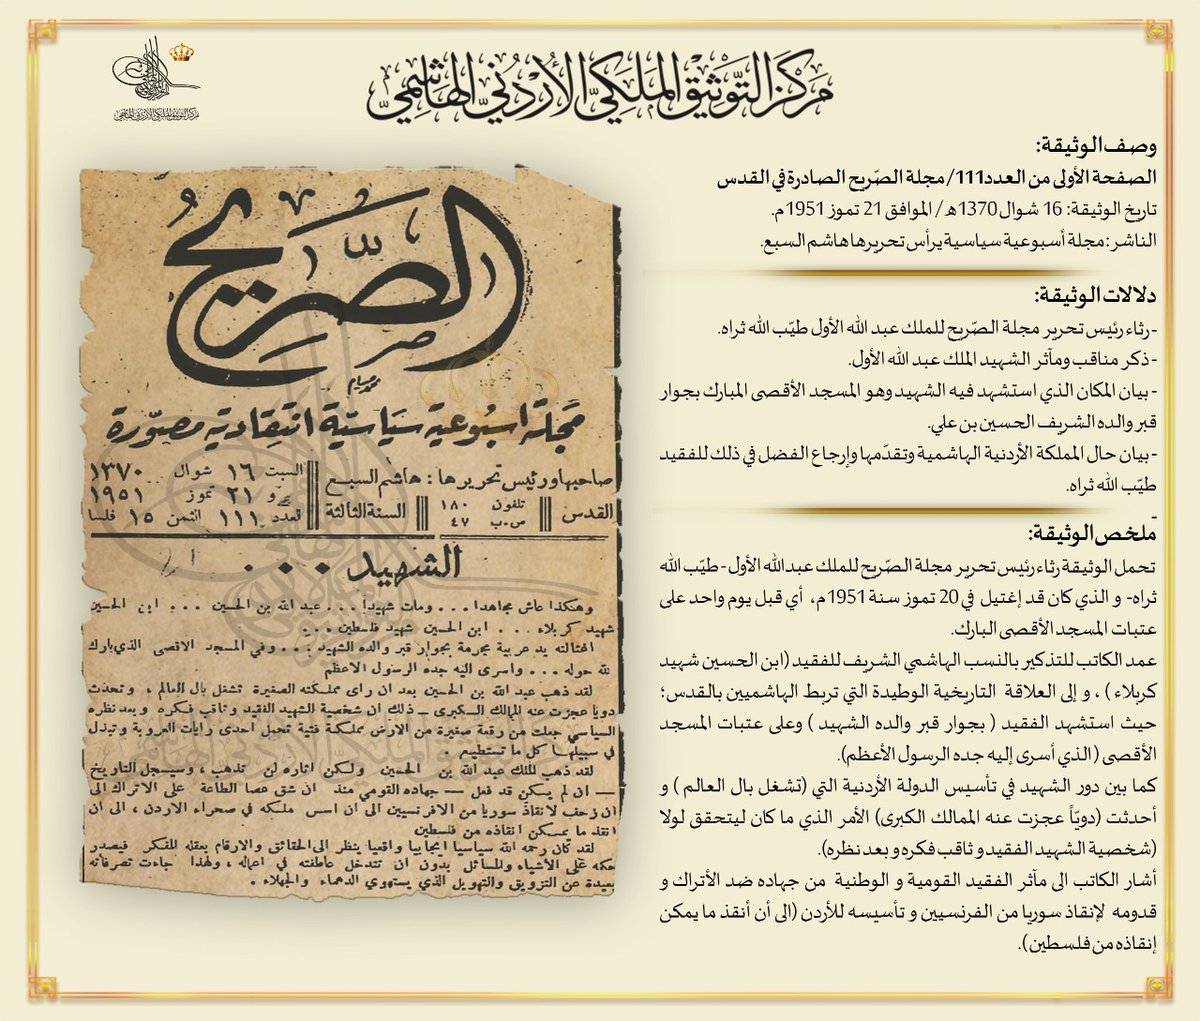 مركز التوثيق الملكي الأردني الهاشمي
مركز التوثيق الملكي الأردني الهاشمي
وصف الوثيقة:
الصفحة الأولى من العدد111/ مجلة الصّريح الصادرة في القدس
تاريخ الوثيقة: 16 شوال 1370هـ/ الموافق 21 تموز 1951م.
الناشر: مجلة أسبوعية سياسية يرأس تحريرها هاشم السبع.
دلالات الوثيقة:
-رثاء رئيس تحرير مجلة الصّريح للملك عبد الله الأول طيّب الله ثراه.
-ذكر مناقب ومآثر الشهيد الملك عبد الله الأول.
-بيان المكان الذي استشهد فيه الشهيد وهو المسجد الأقصى المبارك بجوار
قبر والده الشريف الحسين بن علي.
-بيان حال المملكة الأردنية الهاشمية وتقدّمها وإرجاع الفضل في ذلك للفقيد
طيّب الله ثراه.
-
ملخص الوثيقة:
تحمل الوثيقة رثاء رئيس تحرير مجلة الصّريح للملك عبدالله الأول - طيّب الله
ثراه- و الذي كان قد إغتيل في 20 تموز سنة 1951م، أي قبل يوم واحد على
عتبات المسجد الأقصى البارك.
عمد الكاتب للتذكير بالنسب الهاشمي الشريف للفقيد (ابن الحسين شهيد
كربلاء ) ، و إلى العلاقة التاريخية الوطيدة التي تربط الهاشميين بالقدس؛
حيث استشهد الفقيد ( بجوار قبر والده الشهيد ) وعلى عتبات المسجد
الأقصى (الذي أسرى إليه جده الرسول الأعظم).
كما بين دور الشهيد في تأسيس الدولة الأردنية التي (تشغل بال العالم ) و
أحدثت (دويّاً عجزت عنه الممالك الكبرى) الأمر الذي ما كان ليتحقق لولا
(شخصية الشهيد الفقيد و ثاقب فكره و بعد نظره).
أشار الكاتب الى مآثر الفقيد القومية و الوطنية من جهاده ضد الأتراك و
قدومه لإنقاذ سوريا من الفرنسيين و تأسيسه للأردن (الى أن أنقذ ما يمكن
إنقاذه من فلسطين).
الصّريح
مجلة اسبُوعية سياسيّة انتقادية مصوّرة
صاحبها ورئيس تحريرها : هاشم السبع
السبت ١٦ شوال ١٣٧٠
و ٢١ تموز ١٩٥١
القدس تلفون ١٨٠ السنة الثالثة
ص.ب ٤٧
العدد ١١١ الثمن ١٥ فلسا
الشهيد ...
وهكذا عاش مجاهدا ... ومات شهيدا ... عبد الله بن الحسين ... ابن الحسين
شهيد كربلاء ... ابن الحسين شهيد فلسطين ...
اغتالته يد عربية مجرمة بجوار قبر والده الشهيد ... وفي المسجد الاقصى الذي بارك
لله حوله ... واسرى اليه جده الرسول الاعظم
لقد ذهب عبد الله بن الحسين بعد ان راى مملكته الصغيرة تشغل بال العالم ، وتحدث
دويا عجزت عنه الممالك الكبرى ــ ذلك ان شخصية الشهيد الفقيد وثاقب فكره وبعد نظره
السياسي جعلت من رقعة صغيرة من الارض مملكة فتية تحمل احدى رايات العروبة وتبذل
في سبيلها كل ما تستطيع .
لقد ذهب الملك عبد الله بن الحسين ولكن اثاره لن تذهب ، وسيسجل التاريخ
ــ ان لم يكن قد فعل ــ جهاده القومي منذ ان شق عصا الطاعة على الاتراك الى
ان زحف لانقاذ سوريا من الافرنسيين الى ان اسس ملكه في صحراء الاردن ، الى ان
انقذ ما يمكن انقاذه من فلسطين
لقد كان رحمه الله سياسيا ايجابيا واقعيا ينظر الى الحقائق والارقام بعقله المفكر فيصدر
حكمه على الاشياء والمسائل بدون ان تتدخل عاطفته في اعماله ، ولهذا جاءت تصرفاته
بعيدة عن التزويق والتهويل الذي يستهوي الدهماء والجهلاء .